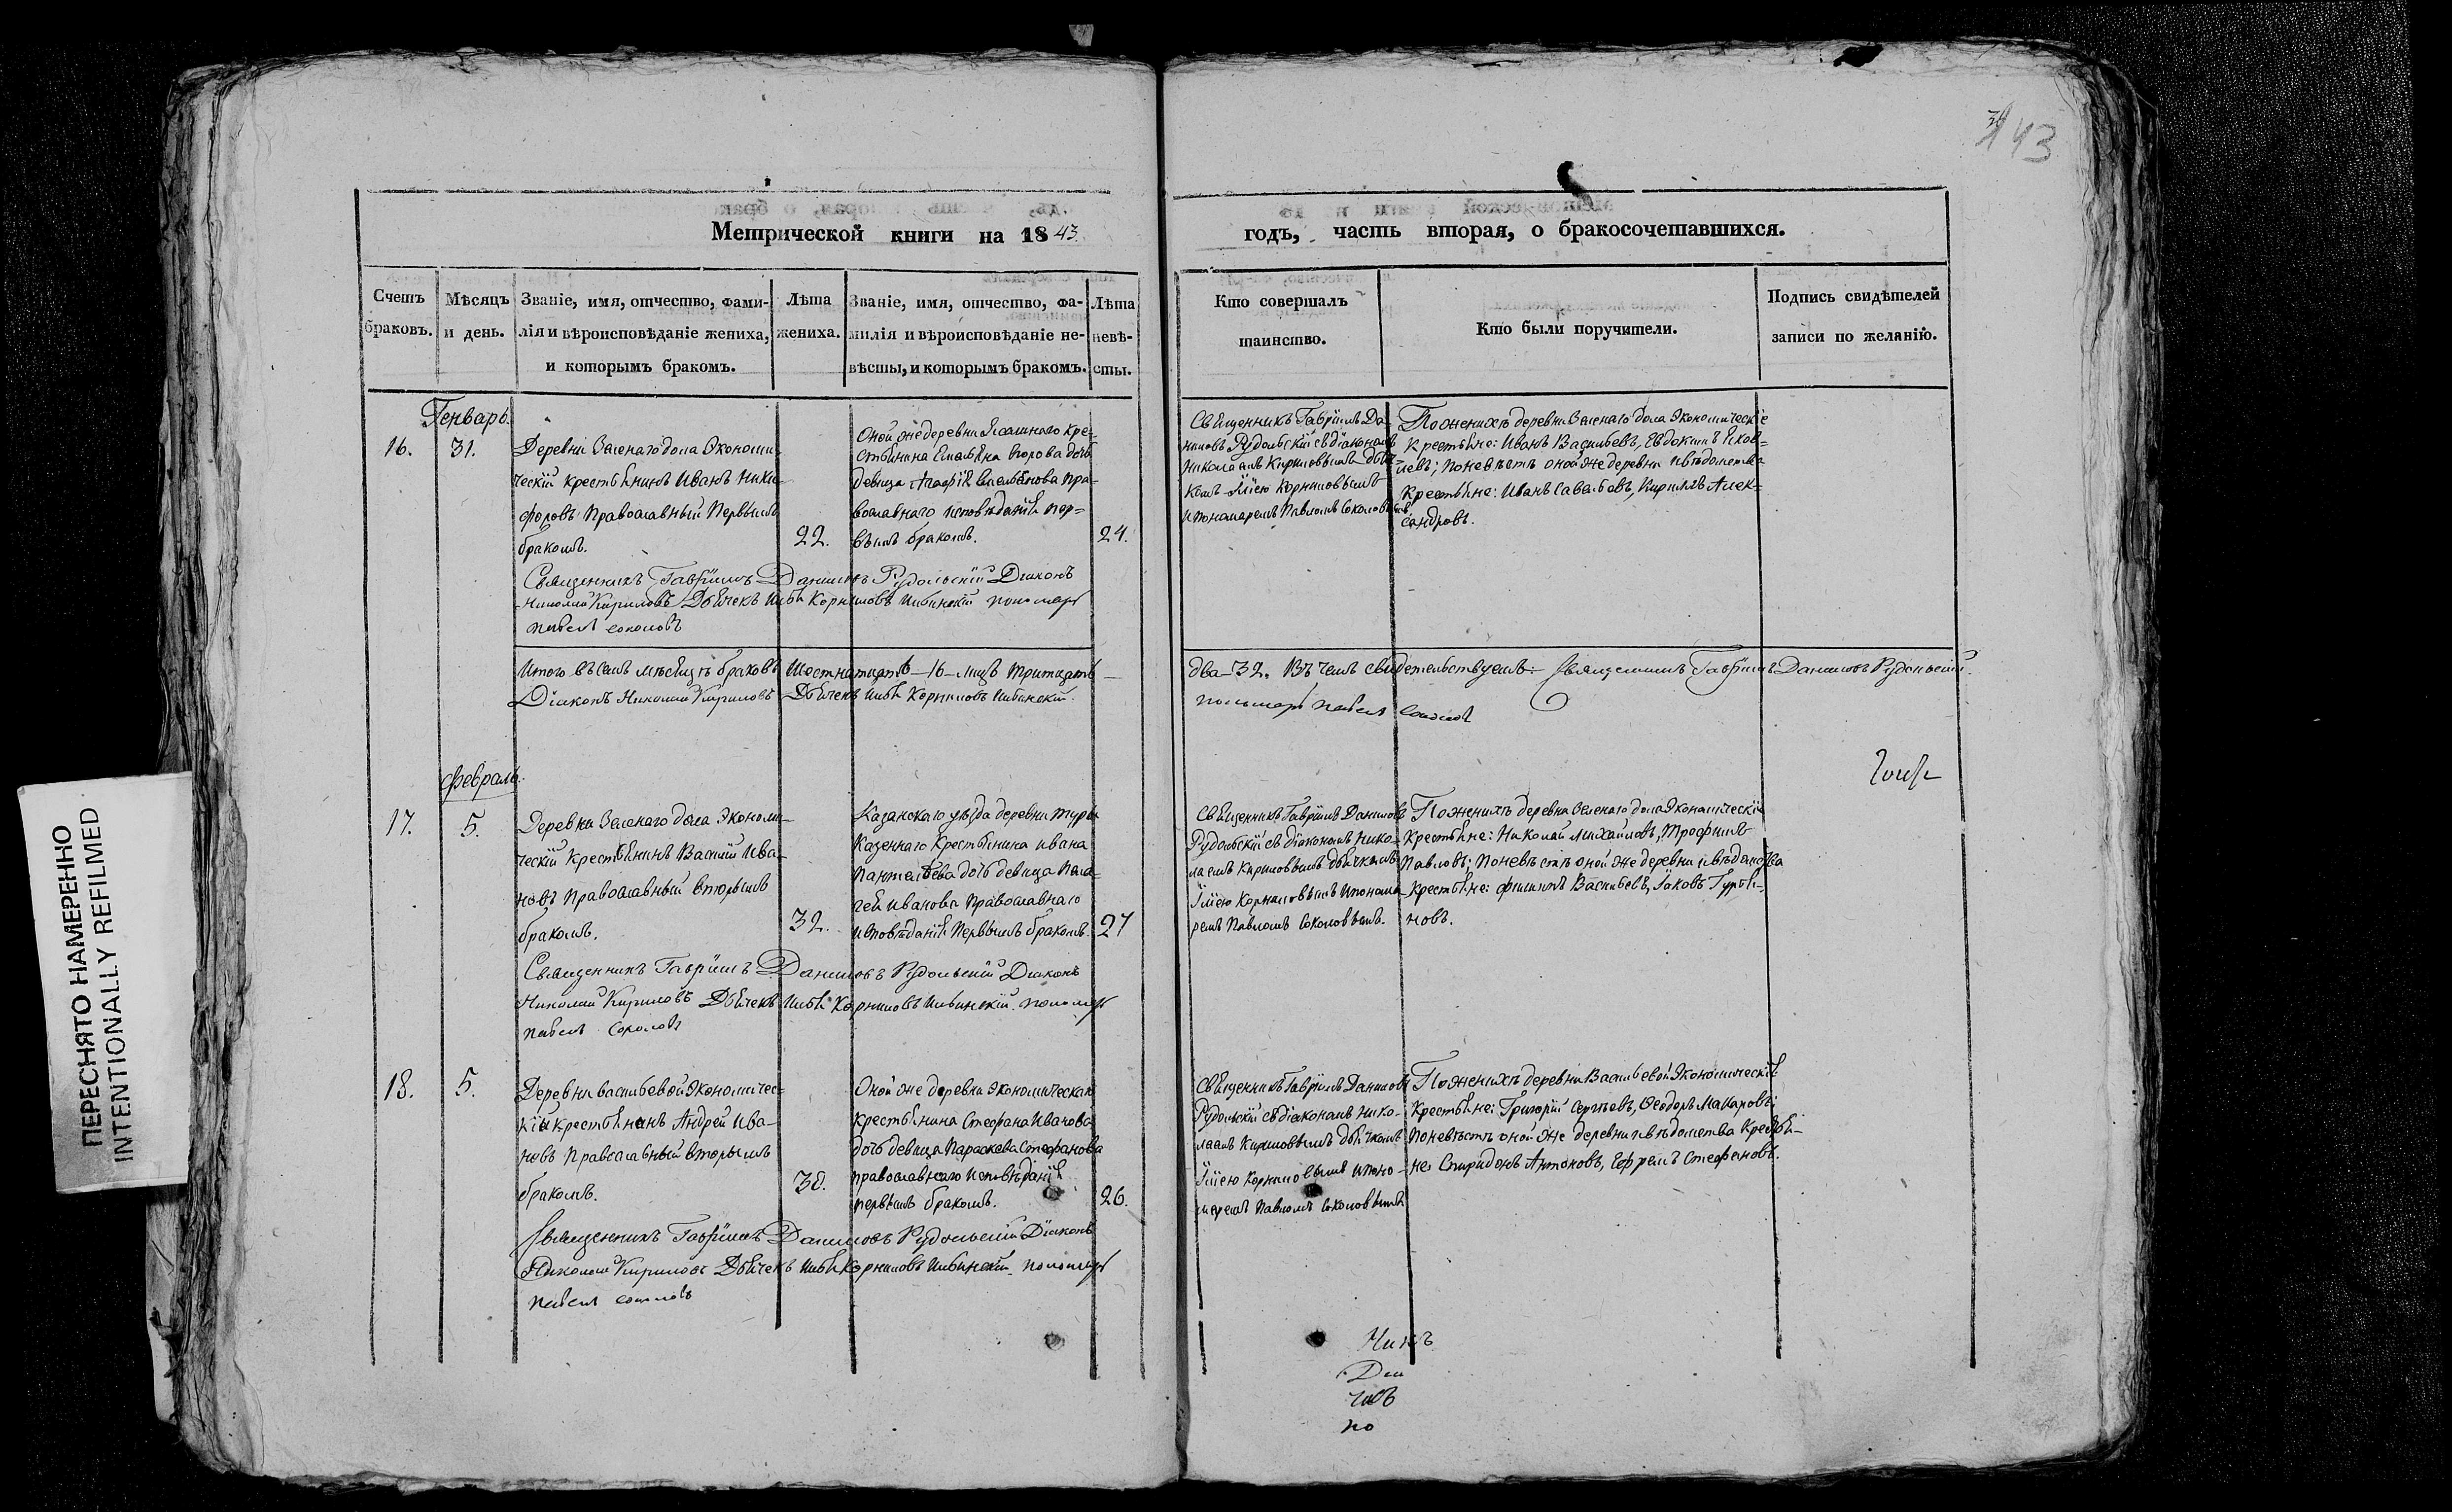 43
Метрической книги на 1843
годъ, часть вторая, о бракосочетавшихся.
Счетъ
браковъ.
Мѣсяцъ
и день.
Званіе, имя, отчество, фами-
лія и вѣроисповѣданіе жениха,
и которымъ бракомъ.
Лѣта
жениха.
Званіе, имя, отчество, фа-
милія и вѣроисповѣданіе не-
вѣсты, и которымъ бракомъ.
Лѣта
невѣ-
сты.
Кто совершалъ
таинство.
Кто были поручители.
Подпись свидѣтелей
записи по желанію.
Генварь.
16.
31.
Деревни Зеленаго дола Экономи-
ческій крестьянинъ Иванъ Ники-
форовъ Православный Первымъ
бракомъ.
22.
Оной же деревни Ясашнаго кре-
стьянина Емельяна дочь
девица Агафія Емельянова Пра-
вославнаго исповѣданія пер-
вымъ бракомъ.
21.
Священникъ Гавріилъ Да-
ниловъ Рудольскій съ діакономъ
Николаемъ Кириловымъ дьяч-
комъ Іліею Корниловымъ
и пономаремъ Павломъ Соколовымъ
По женихѣ деревни Зеленаго дола Экономическіе
крестьяне: Иванъ Васильевъ, Евдокимъ Яков-
левъ; по невѣстѣ оной же деревни и вѣдомства
крестьяне: Иванъ Савельевъ, Кирилъ Алек-
сандровъ.
Священникъ Гавріилъ Даниловъ Рудольскій Діаконъ
Николай Кириловъ Дьячекъ Илья Корниловъ пономарь
Павелъ Соколовъ
Итого въ семъ мѣсяцѣ браковъ Шестнатцать — 16 — лицъ Тритцать —
два — 32. Въ чемъ свидетельствуемъ: Священникъ Гавріилъ Даниловъ Рудольскій.
Діаконъ Николай Кириловъ Дьячекъ Илья Корниловъ
пономарь Павелъ Соколовъ
Февраль.
17.
5.
Деревни Зеленаго дола Экономи-
ческій крестьянинъ Василій Ива-
новъ Православный вторымъ
бракомъ.
32.
Казанскаго уѣзда деревни Туры
Казеннаго Крестьянина Ивана
Пантелѣева дочь девица Пела-
гея Иванова Православнаго
исповѣданія Первымъ бракомъ.
27
Священникъ Гавріилъ Даниловъ
Рудольскій съ діакономъ Нико-
лаемъ Кириловымъ дьячкомъ
Іліею Корниловымъ и понома-
ремъ Павломъ Соколовымъ.
По женихѣ деревни Зеленаго дола Экономическіе
Крестьяне: Николай Михайловъ, Трофимъ
Павловъ; по невѣстѣ оной же деревни и вѣдомства
Крестьяне: Филипъ Васильевъ, Іаковъ Гурья-
новъ.
Священникъ Гавріилъ Даниловъ Рудольскій Діаконъ
Николай Кириловъ Дьячекъ Илья Корниловъ пономарь
Павелъ Соколовъ
18.
5.
Деревни Васильевой Экономичес-
кій крестьянинъ Андрей Ива-
новъ Православный вторымъ
бракомъ.
38.
Оной же деревни Экономическаго
крестьянина Стефана Иванова
дочь девица Параскева Стефанова
православнаго исповѣданія
первымъ бракомъ.
26.
Священникъ Гавріилъ Даниловъ
Рудольскій съ діакономъ Нико-
лаемъ Кириловымъ дьячкомъ
Іліею Корниловымъ и поно-
маремъ Павломъ Соколовымъ
По женихѣ деревни Васильевой Экономическіе
Крестьяне: Григорій Сергѣевъ, Ѳеодоръ Макаровъ;
по невѣстѣ оной же деревни и вѣдомства Крестья-
не Спиридонъ Антоновъ, Ефремъ Стефановъ.
Священникъ Гавріилъ Даниловъ Рудольскій Діаконъ
Николай Кириловъ Дьячекъ Илья Корниловъ пономарь
Павелъ Соколовъ
по
ПЕРЕСНЯТО НАМЕРЕННО
INTENTIONALLY REFILMED